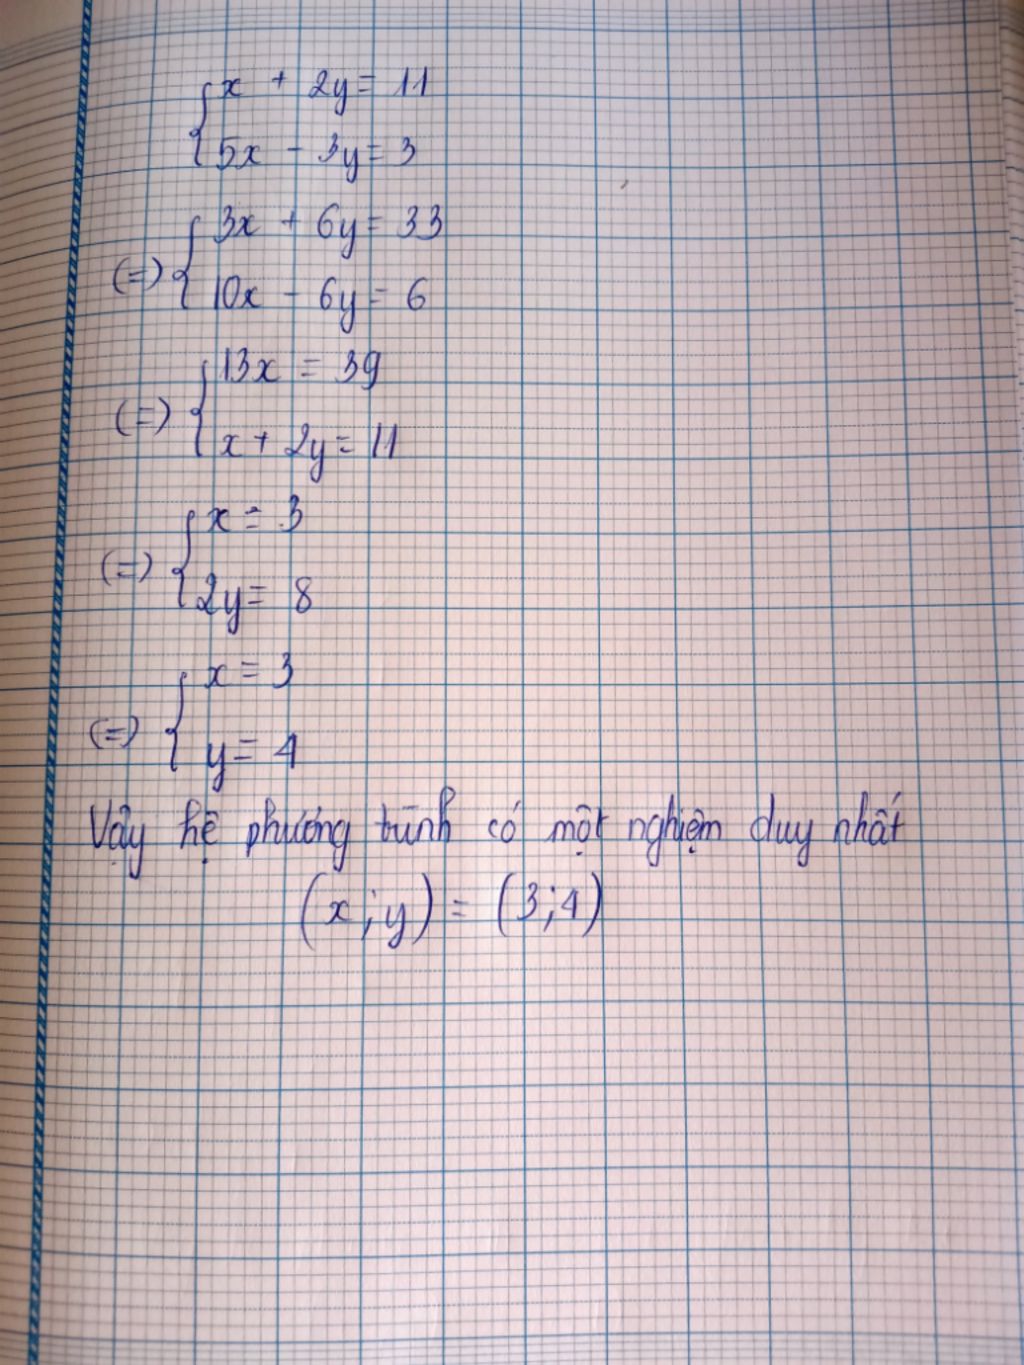 { x + 2y = 11
5x - 3y = 3
(=) { 3x + 6y = 33
10x - 6y = 6
(=) { 13x = 39
x + 2y = 11
(=) { x = 3
2y = 8
(=) { x = 3
y = 4
Vậy hệ phương trình có một nghiệm duy nhất
(x ; y) = (3 ; 4)